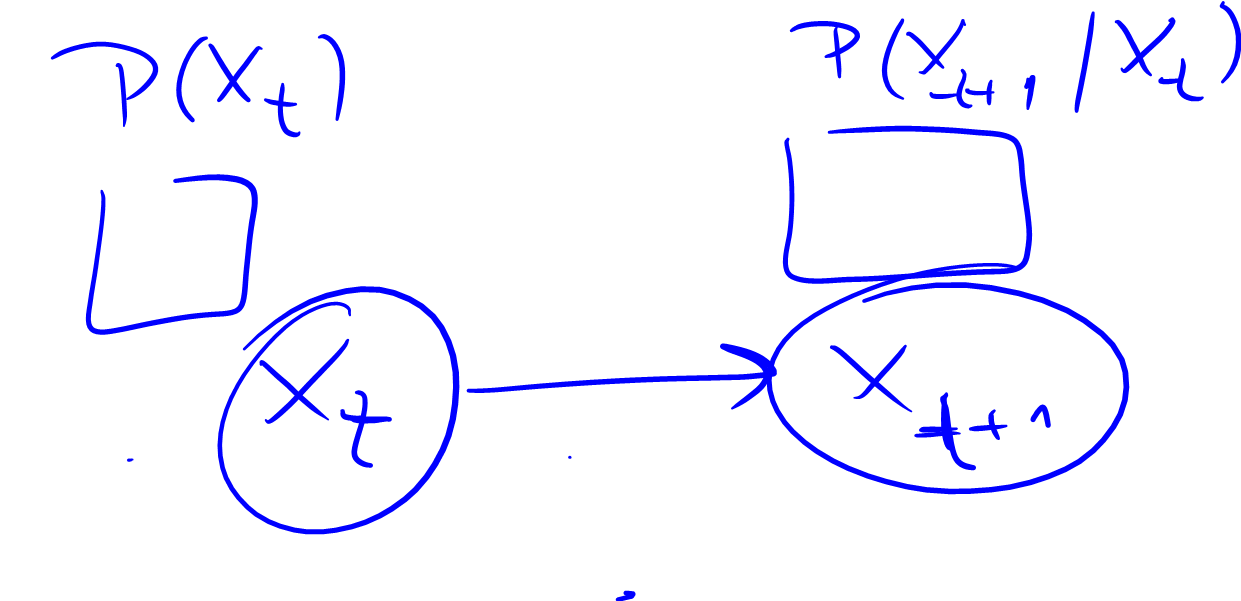 P(X_t) P(X_{t+1} | X_t)
X_t X_{t+1}